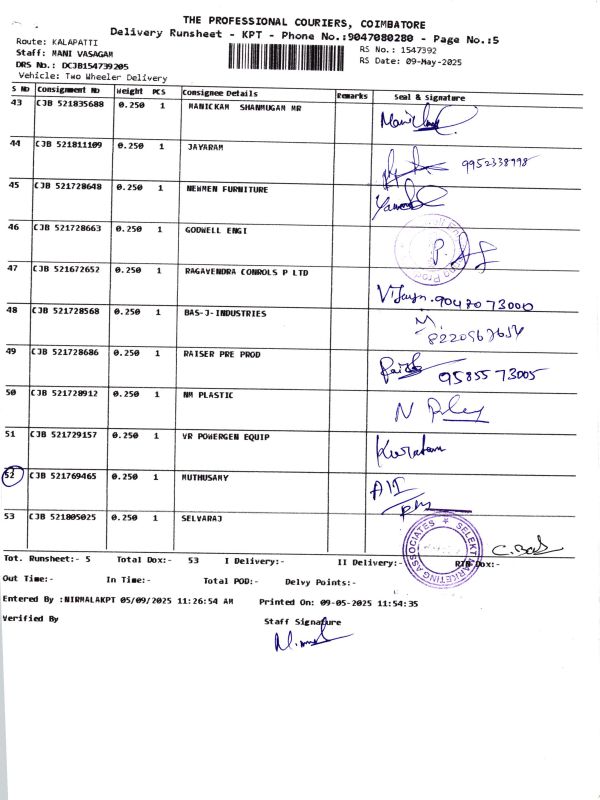 THE PROFESSIONAL COURIERS, COIMBATORE
Delivery Runsheet - KPT - Phone No.:9047080280 - Page No.:5
Route: KALAPATTI
RS No.: 1547392
Staff: MANI VASAGAM
RS Date: 09-May-2025
DRS No.: DCJB154739205
Vehicle: Two Wheeler Delivery
S No Consignment No Weight PCS Consignee Details Remarks Seal & Signature
43 CJB 521835688 0.250 1 MANICKAM SHANMUGAM MR
44 CJB 521811109 0.250 1 JAYARAM
9952338998
45 CJB 521728648 0.250 1 NEWMEN FURNITURE
46 CJB 521728663 0.250 1 GODWELL ENGI
47 CJB 521672652 0.250 1 RAGAVENDRA CONROLS P LTD
9047073000
48 CJB 521728568 0.250 1 BAS-J-INDUSTRIES
49 CJB 521728686 0.250 1 RAISER PRE PROD
9585573005
50 CJB 521728912 0.250 1 NM PLASTIC
51 CJB 521729157 0.250 1 VR POWERGEN EQUIP
52 CJB 521769465 0.250 1 MUTHUSAMY
53 CJB 521805025 0.250 1 SELVARAJ
SELEKT MARKETING ASSOCIATES
Tot. Runsheet:- 5 Total Dox:- 53 I Delivery:- II Delivery:- RTN Dox:-
Out Time:- In Time:- Total POD:- Delvy Points:-
Entered By :NIRMALAKPT 05/09/2025 11:26:54 AM Printed On: 09-05-2025 11:54:35
Verified By Staff Signature